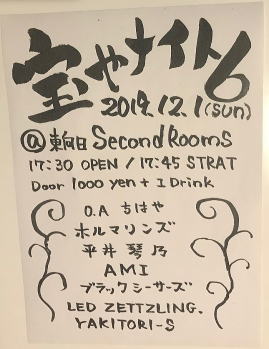 宝やナイト6
2019.12.1(SUN)
@東向日 Second Rooms
17:30 OPEN / 17:45 STRAT
Door 1000 yen + 1 Drink
O.A ちはや
ホルマリンズ
平井 琴乃
AMI
ブラックシーサーズ
LED ZETTZLING.
YAKITORI-S